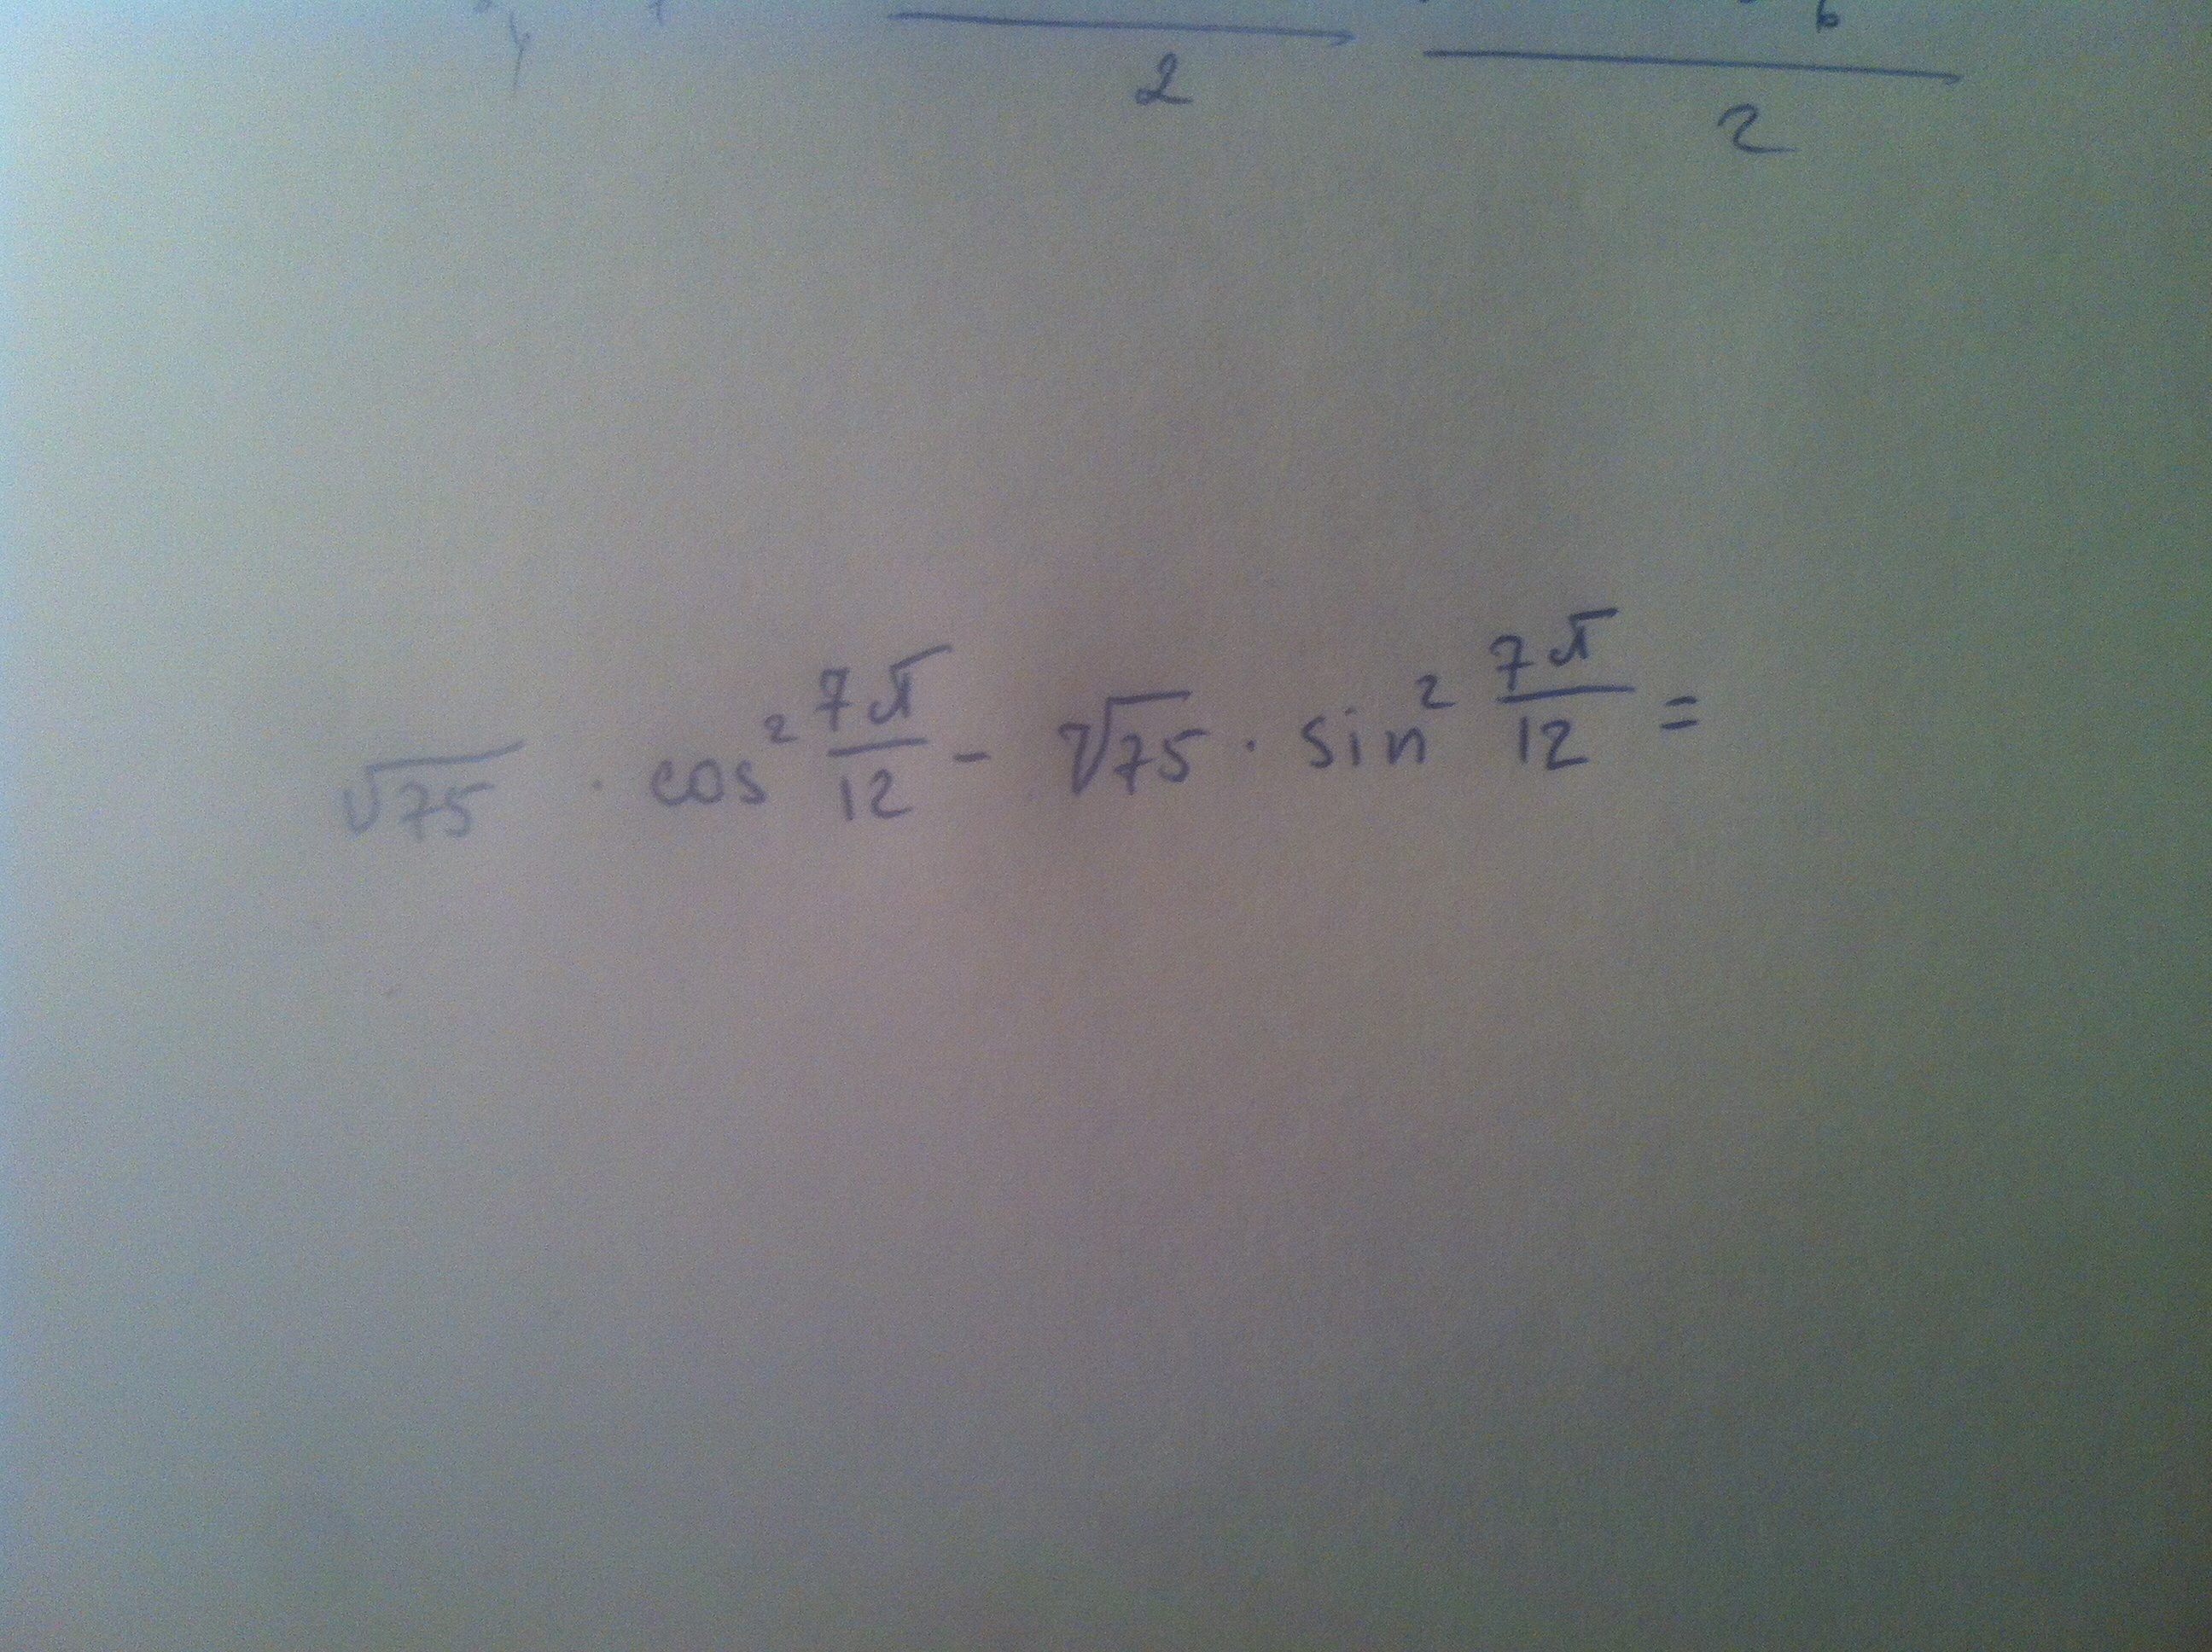 2 2
√75 · cos² 7π/12 - √75 · sin² 7π/12 =